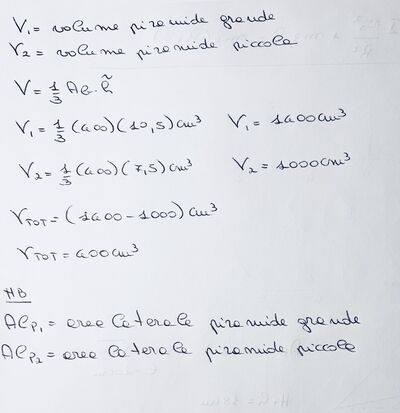 V₁ = volume piramide grande
V₂ = volume piramide piccola
V = 1/3 Ab · h̃
V₁ = 1/3 (400) (10,5) cm³ V₁ = 1400 cm³
V₂ = 1/3 (400) (7,5) cm³ V₂ = 1000 cm³
V_TOT = (1400 - 1000) cm³
V_TOT = 400 cm³
NB
Al_P₁ = area laterale piramide grande
Al_P₂ = area laterale piramide piccola